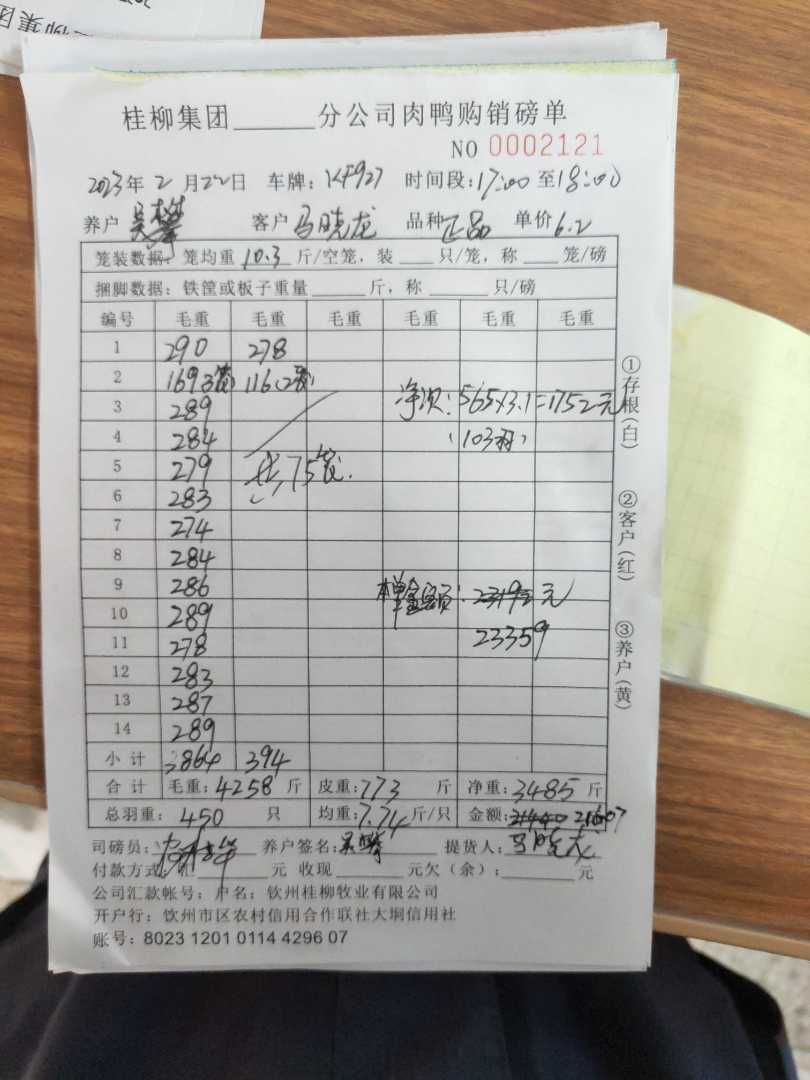 桂柳集团______分公司肉鸭购销磅单
NO 0002121
2023年2月22日 车牌: KF927 时间段:17:00至18:00
养户 吴攀 客户 马晓龙 品种 正品 单价 6.2
笼装数据: 笼均重 10.3 斤/空笼, 装___只/笼, 称___笼/磅
捆脚数据: 铁筐或板子重量______斤, 称______只/磅
编号 毛重 毛重 毛重 毛重 毛重 毛重
1 290 278
2 169(3笼) 116(2笼)
3 289 净次: 565×3.1=1752元
4 284 (103羽)
5 279 共75笼.
6 283
7 274
8 284
9 286 本单金额: 23192元
10 289
11 278 23359
12 283
13 287
14 289
小计 3864 394
合计 毛重: 4258 斤 皮重: 773 斤 净重: 3485 斤
总羽重: 450 只 均重: 7.74 斤/只 金额: 21440 21607
司磅员: 养户签名: 吴攀 提货人: 马晓龙
付款方式: 汇______元 收现______元欠(余):______元
公司汇款帐号: 户名: 钦州桂柳牧业有限公司
开户行: 钦州市区农村信用合作联社大垌信用社
账号: 8023 1201 0114 4296 07
①存根(白)
②客户(红)
③养户(黄)